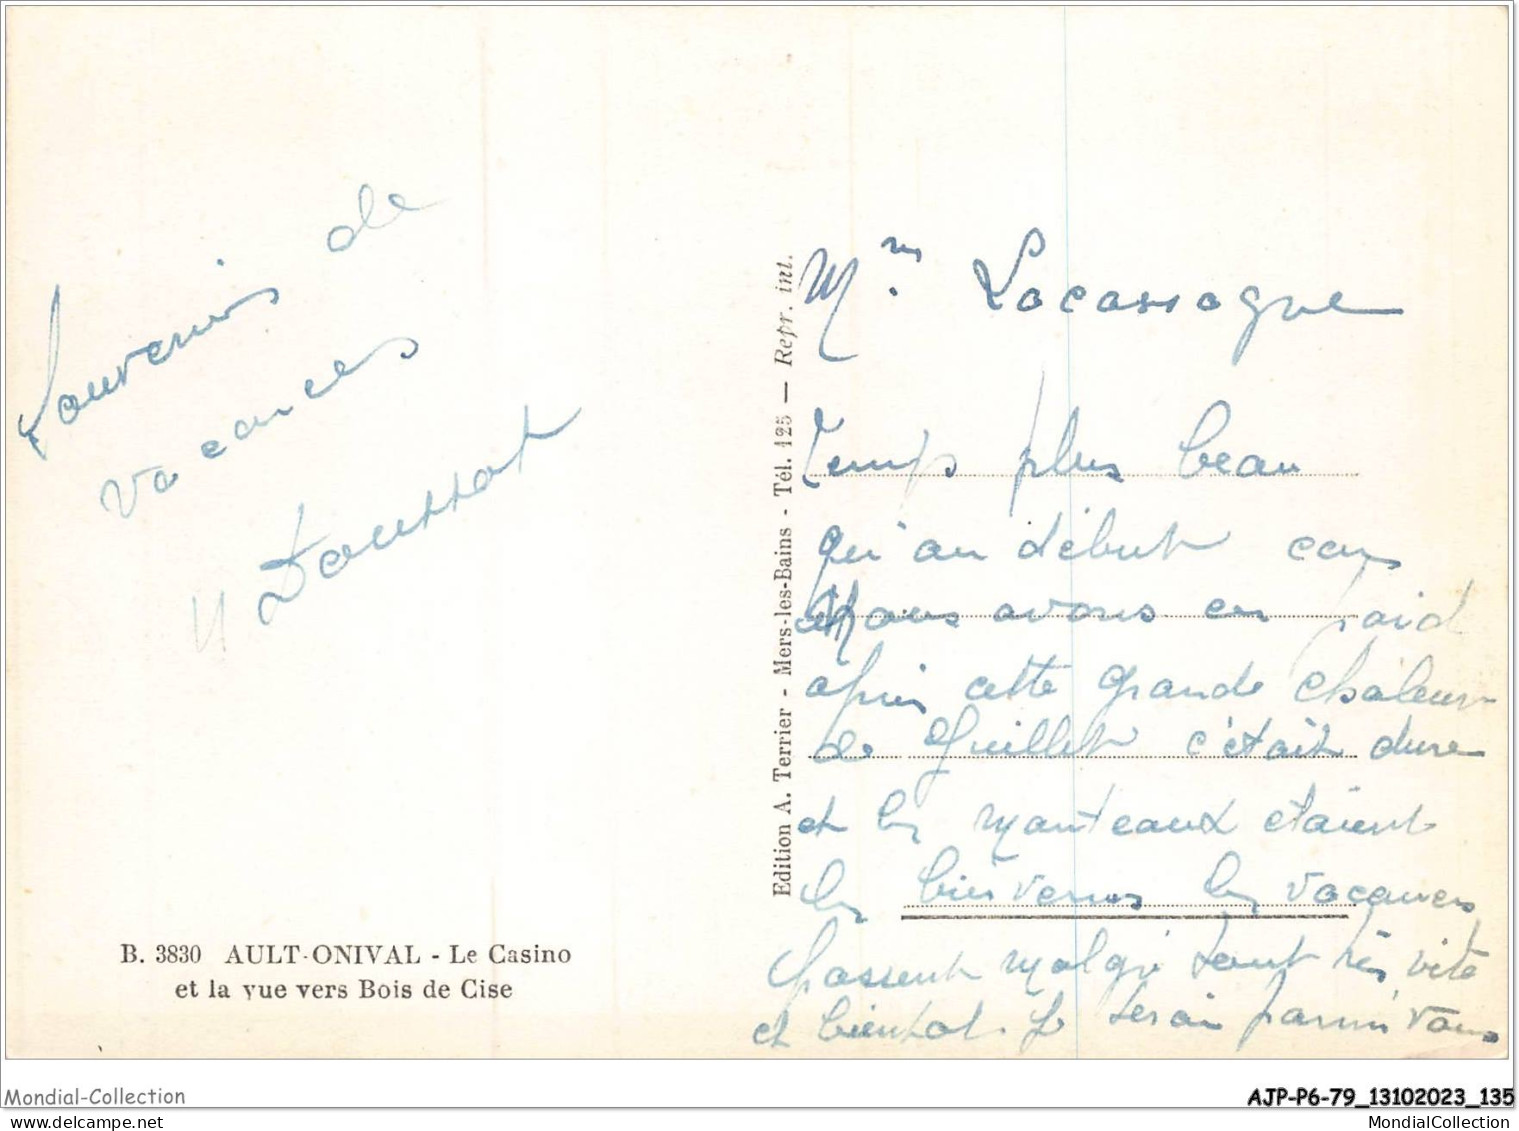 Souvenirs de
vacances
Doussot
B. 3830 AULT-ONIVAL - Le Casino
et la vue vers Bois de Cise
Edition A. Terrier - Mers-les-Bains - Tél. 125 — Repr. int.
Mm. Lacassagne
Temps plus beau
qu'au début car
nous avons eu froid
après cette grande chaleur
de Juillet c'était dure
et les manteaux étaient
les bienvenus les vacances
passent malgré tout très vite
et bientot je serai parmi vous
Mondial-Collection
AJP-P6-79_13102023_135
Mondial-Collection
MondialCollection